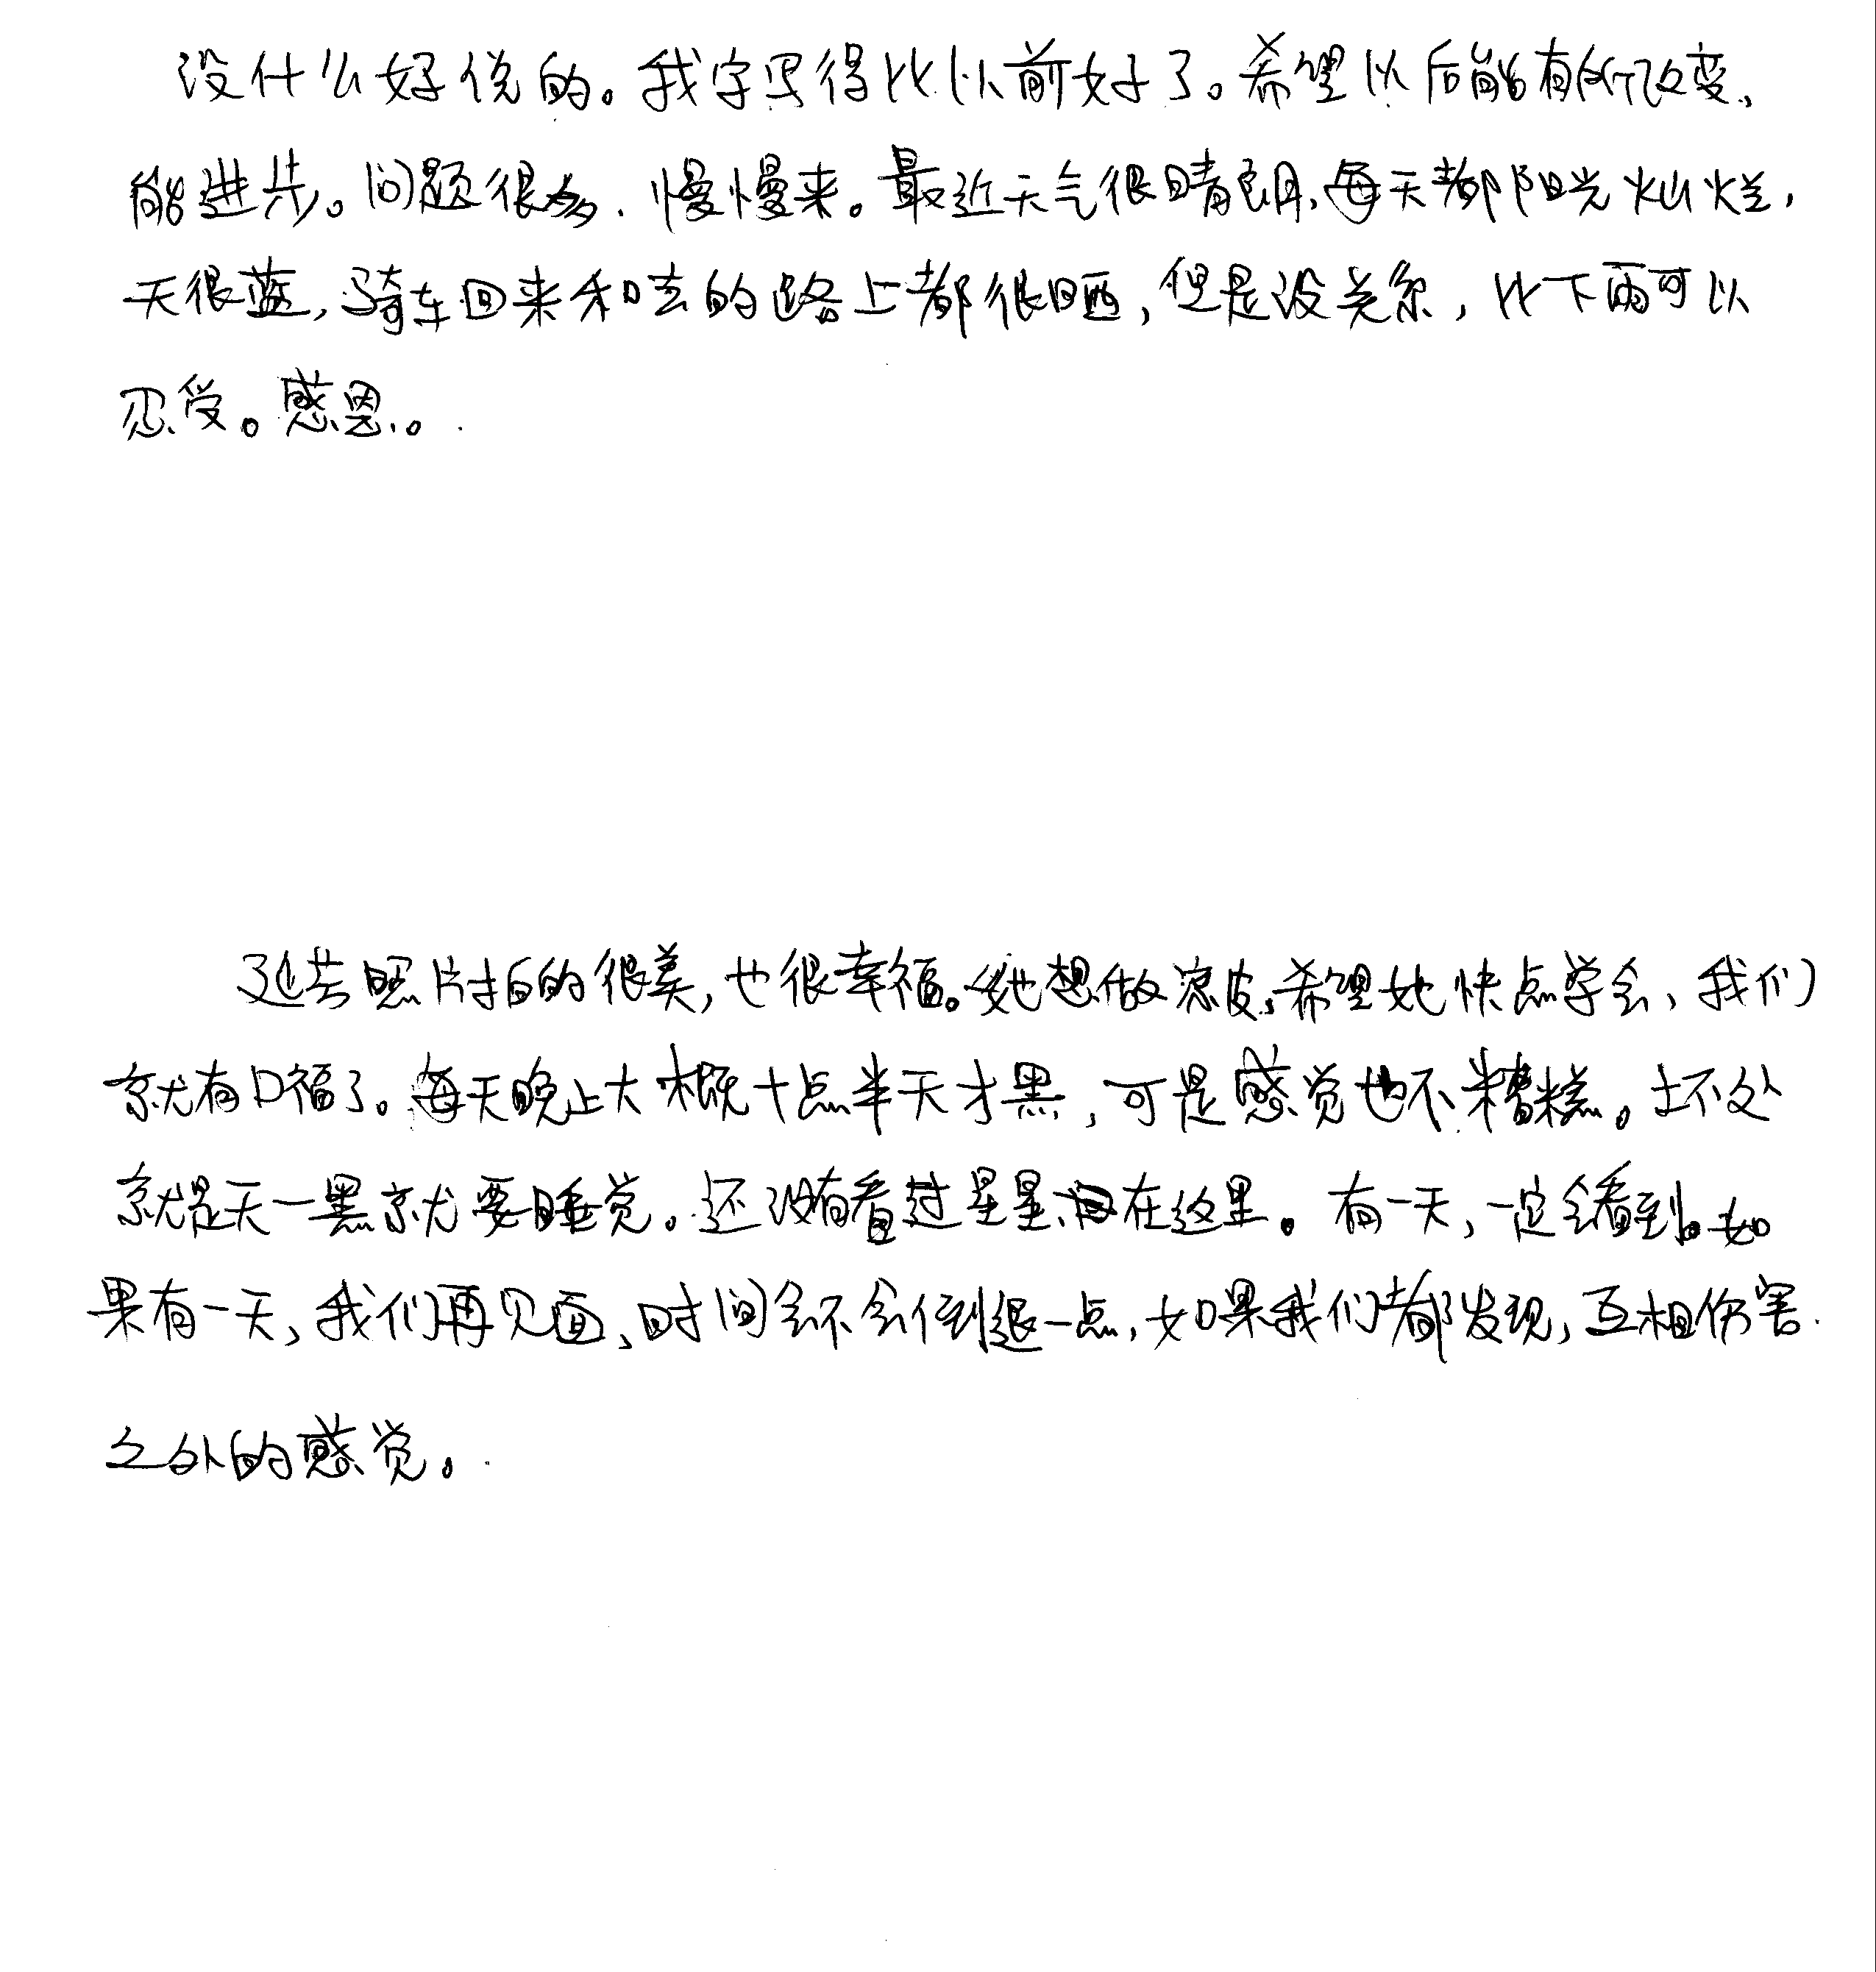 没什么好说的。我字写得比以前好了。希望以后能有所改变,
能进步。问题很多,慢慢来。最近天气很晴朗,每天都阳光灿烂,
天很蓝,骑车回来和去的路上都很晒,但是没关系,比下雨可以
忍受。感恩。
这些照片拍的很美,也很幸福。她想做凉皮,希望她快点学会,我们
就有口福了。每天晚上大概十点半天才黑,可是感觉也不糟糕。坏处
就是天一黑就要睡觉。还没有看过星星,在这里。有一天,一定会看到。如
果有一天,我们再见面,时间会不会倒退一点,如果我们都发现,互相伤害
之外的感觉。